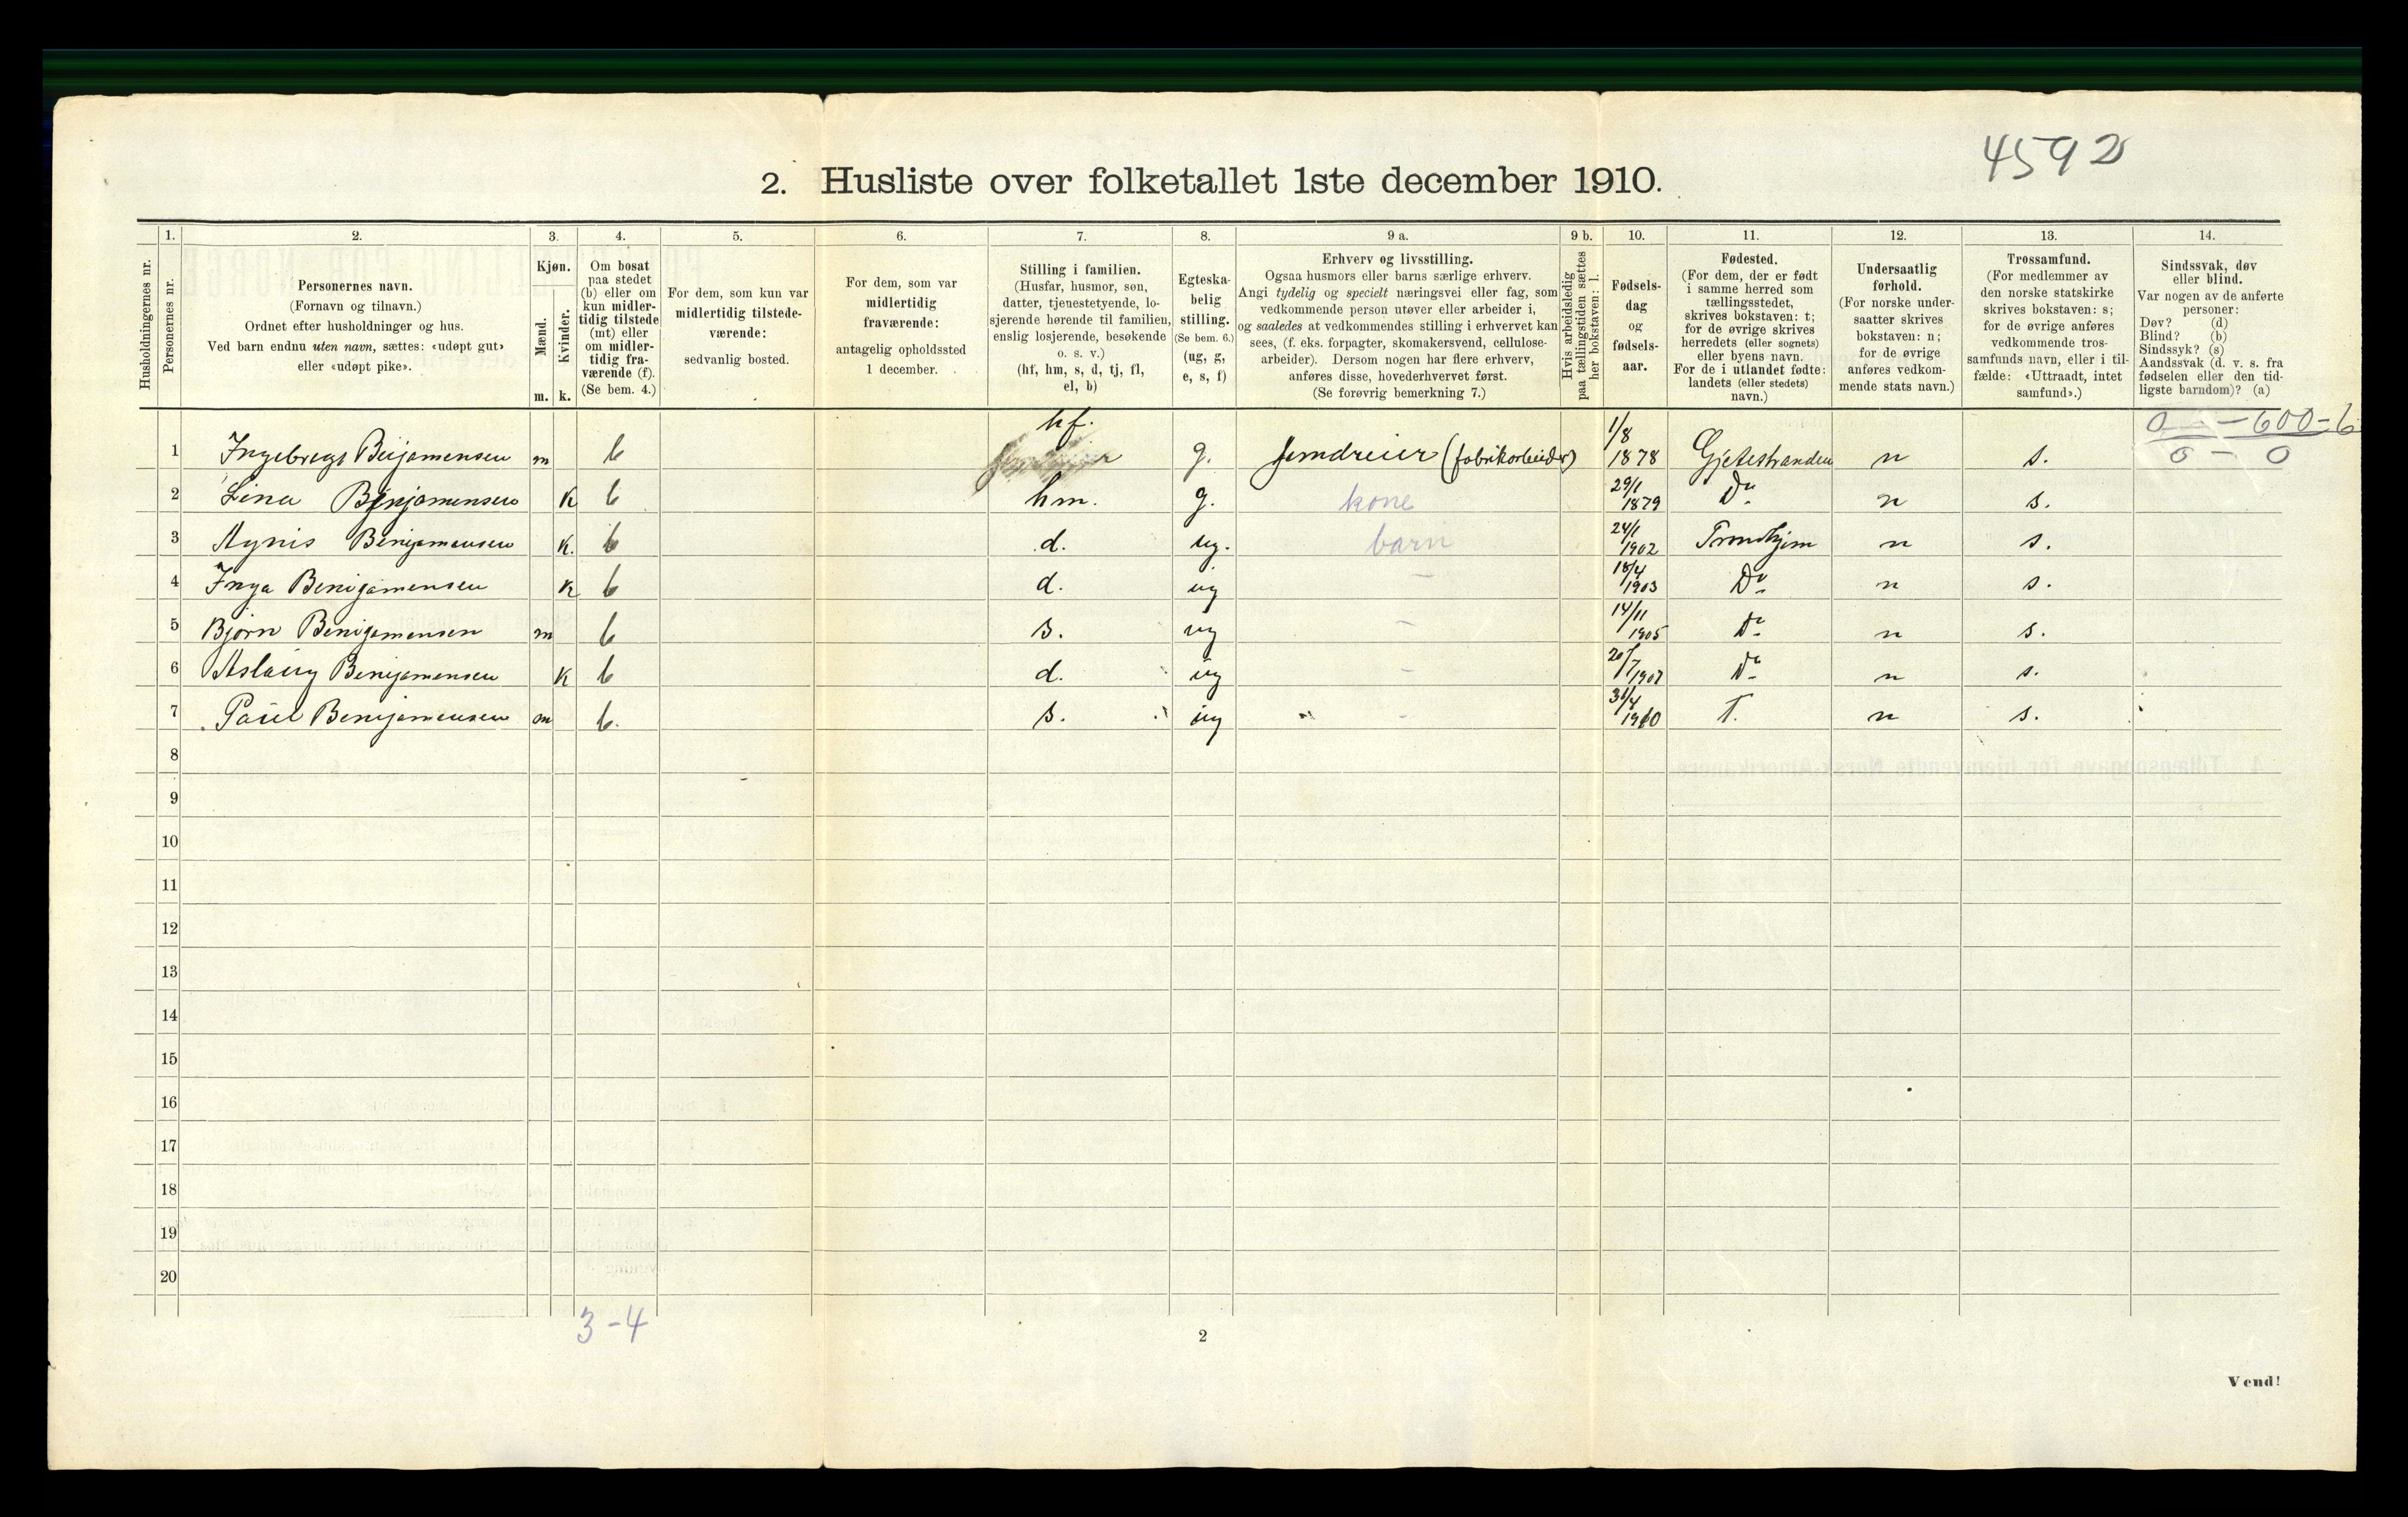 4592
2. Husliste over folketallet 1ste december 1910.
Husholdningernes nr.
1.
Personernes nr.
2.
Personernes navn.
(Fornavn og tilnavn.)
Ordnet efter husholdninger og hus.
Ved barn endnu uten navn, sættes: «udøpt gut»
eller «udøpt pike».
3.
Kjøn.
Mænd.
Kvinder.
m. k.
4.
Om bosat
paa stedet
(b) eller om
kun midler-
tidig tilstede
(mt) eller
om midler-
tidig fra-
værende (f).
(Se bem. 4.)
5.
For dem, som kun var
midlertidig tilstede-
værende:
sedvanlig bosted.
6.
For dem, som var
midlertidig
fraværende:
antagelig opholdssted
1 december.
7.
Stilling i familien.
(Husfar, husmor, søn,
datter, tjenestetyende, lo-
sjerende hørende til familien,
enslig losjerende, besøkende
o. s. v.)
(hf, hm, s, d, tj, fl,
el, b)
8.
Egteska-
belig
stilling.
(Se bem. 6.)
(ug, g,
e, s, f)
9 a.
Erhverv og livsstilling.
Ogsaa husmors eller barns særlige erhverv.
Angi tydelig og specielt næringsvei eller fag, som
vedkommende person utøver eller arbeider i,
og saaledes at vedkommendes stilling i erhvervet kan
sees, (f. eks. forpagter, skomakersvend, cellulose-
arbeider). Dersom nogen har flere erhverv,
anføres disse, hovederhvervet først.
(Se forøvrig bemerkning 7.)
9 b.
Hvis arbeidsledig
paa tællingstiden sættes
her bokstaven: l.
10.
Fødsels-
dag
og
fødsels-
aar.
11.
Fødested.
(For dem, der er født
i samme herred som
tællingsstedet,
skrives bokstaven: t;
for de øvrige skrives
herredets (eller sognets)
eller byens navn.
For de i utlandet fødte:
landets (eller stedets)
navn.)
12.
Undersaatlig
forhold.
(For norske under-
saatter skrives
bokstaven: n;
for de øvrige
anføres vedkom-
mende stats navn.)
13.
Trossamfund.
(For medlemmer av
den norske statskirke
skrives bokstaven: s;
for de øvrige anføres
vedkommende tros-
samfunds navn, eller i til-
fælde: «Uttraadt, intet
samfund».)
14.
Sindssvak, døv
eller blind.
Var nogen av de anførte
personer:
Døv? (d)
Blind? (b)
Sindssyk? (s)
Aandssvak (d. v. s. fra
fødselen eller den tid-
ligste barndom)? (a)
0 - 600 - 6
0 - 0
1 Ingebregt Benjamensen m b hf. g. Jerndreier (fabrikarbeider) 1/8 1878 Gjetestranden n s.
2 Lina Benjamensen K b hm. g. kone 29/1 1879 Do n s.
3 Agnis Benijamensen K. b d. ug. barn 24/1 1902 Trondhjem n s.
4 Inga Benijamensen K b d. ug - 18/4 1903 Do n s.
5 Bjørn Benijamensen m b s. ug - 14/11 1905 Do n s.
6 Aslaug Benijamensen K b d. ug - 20/7 1907 Do n s.
7 Paul Benijamensen m b. s. ug - 31/4 1910 T. n s.
8
9
10
11
12
13
14
15
16
17
18
19
20
3-4
2
Vend!